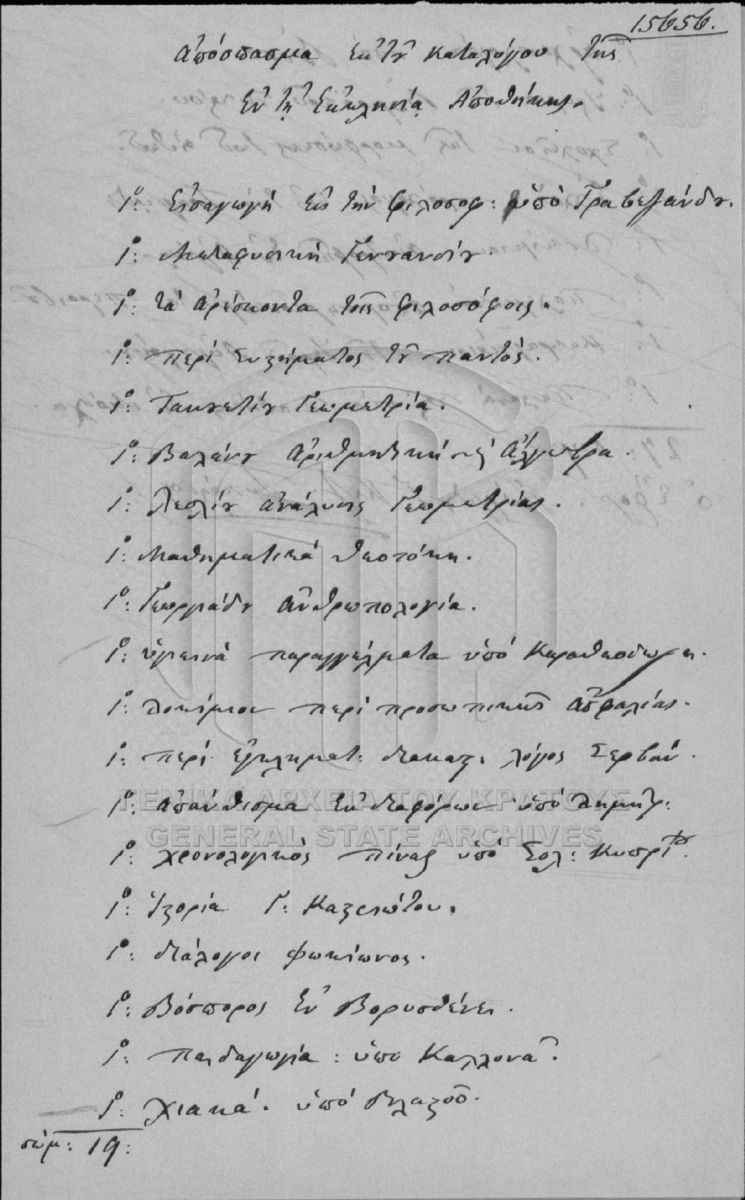 15656.
Ἀπόσπασμα ἐκ τοῦ καταλόγου τῆς
ἐν τῇ Ἐκκλησίᾳ Ἀποθήκης.
1: Εἰσαγωγή εἰς τήν φιλοσοφ: ὑπό Γραβεζάνδου.
1: Μεταφυσική Γενουανσίου.
1: τά ἀρέσκοντα τοῖς φιλοσόφοις.
1: περί συστήματος τοῦ παντός.
1: Τακουετίου Γεωμετρία.
1: Βαλάνου Ἀριθμητική καί Ἄλγεβρα.
1: Λεσλίου ἀνάλυσις Γεωμετρίας.
1: Μαθηματικά Θεοτόκη.
1: Γεωργιάδου Ἀνθρωπολογία.
1: ὑγιεινά παραγγέλματα ὑπό Καραθεοδωρῆ.
1: Δοκίμιον περί προσωπικῆς ἀσφαλείας.
1: περί ἐγκληματ: δικαιο. λόγος Σερβάν.
1: ἀπάνθισμα ἐκ διαφόρων ὑπό Δημητρ:
1: χρονολογικός πίναξ ὑπό Κυπρι
1: Ἱστορία Γ: Καζελώτου.
1: διάλογοι Φωκίωνος.
1: Βόσπορος ἐν Βορυσθένει.
1: Παιδαγωγία: ὑπό Καλλονᾶ.
1: Χιακά. ὑπό Βλαστοῦ.
σώμ: 19:
ΓΕΝΙΚΑ ΑΡΧΕΙΑ ΤΟΥ ΚΡΑΤΟΥΣ
GENERAL STATE ARCHIVES